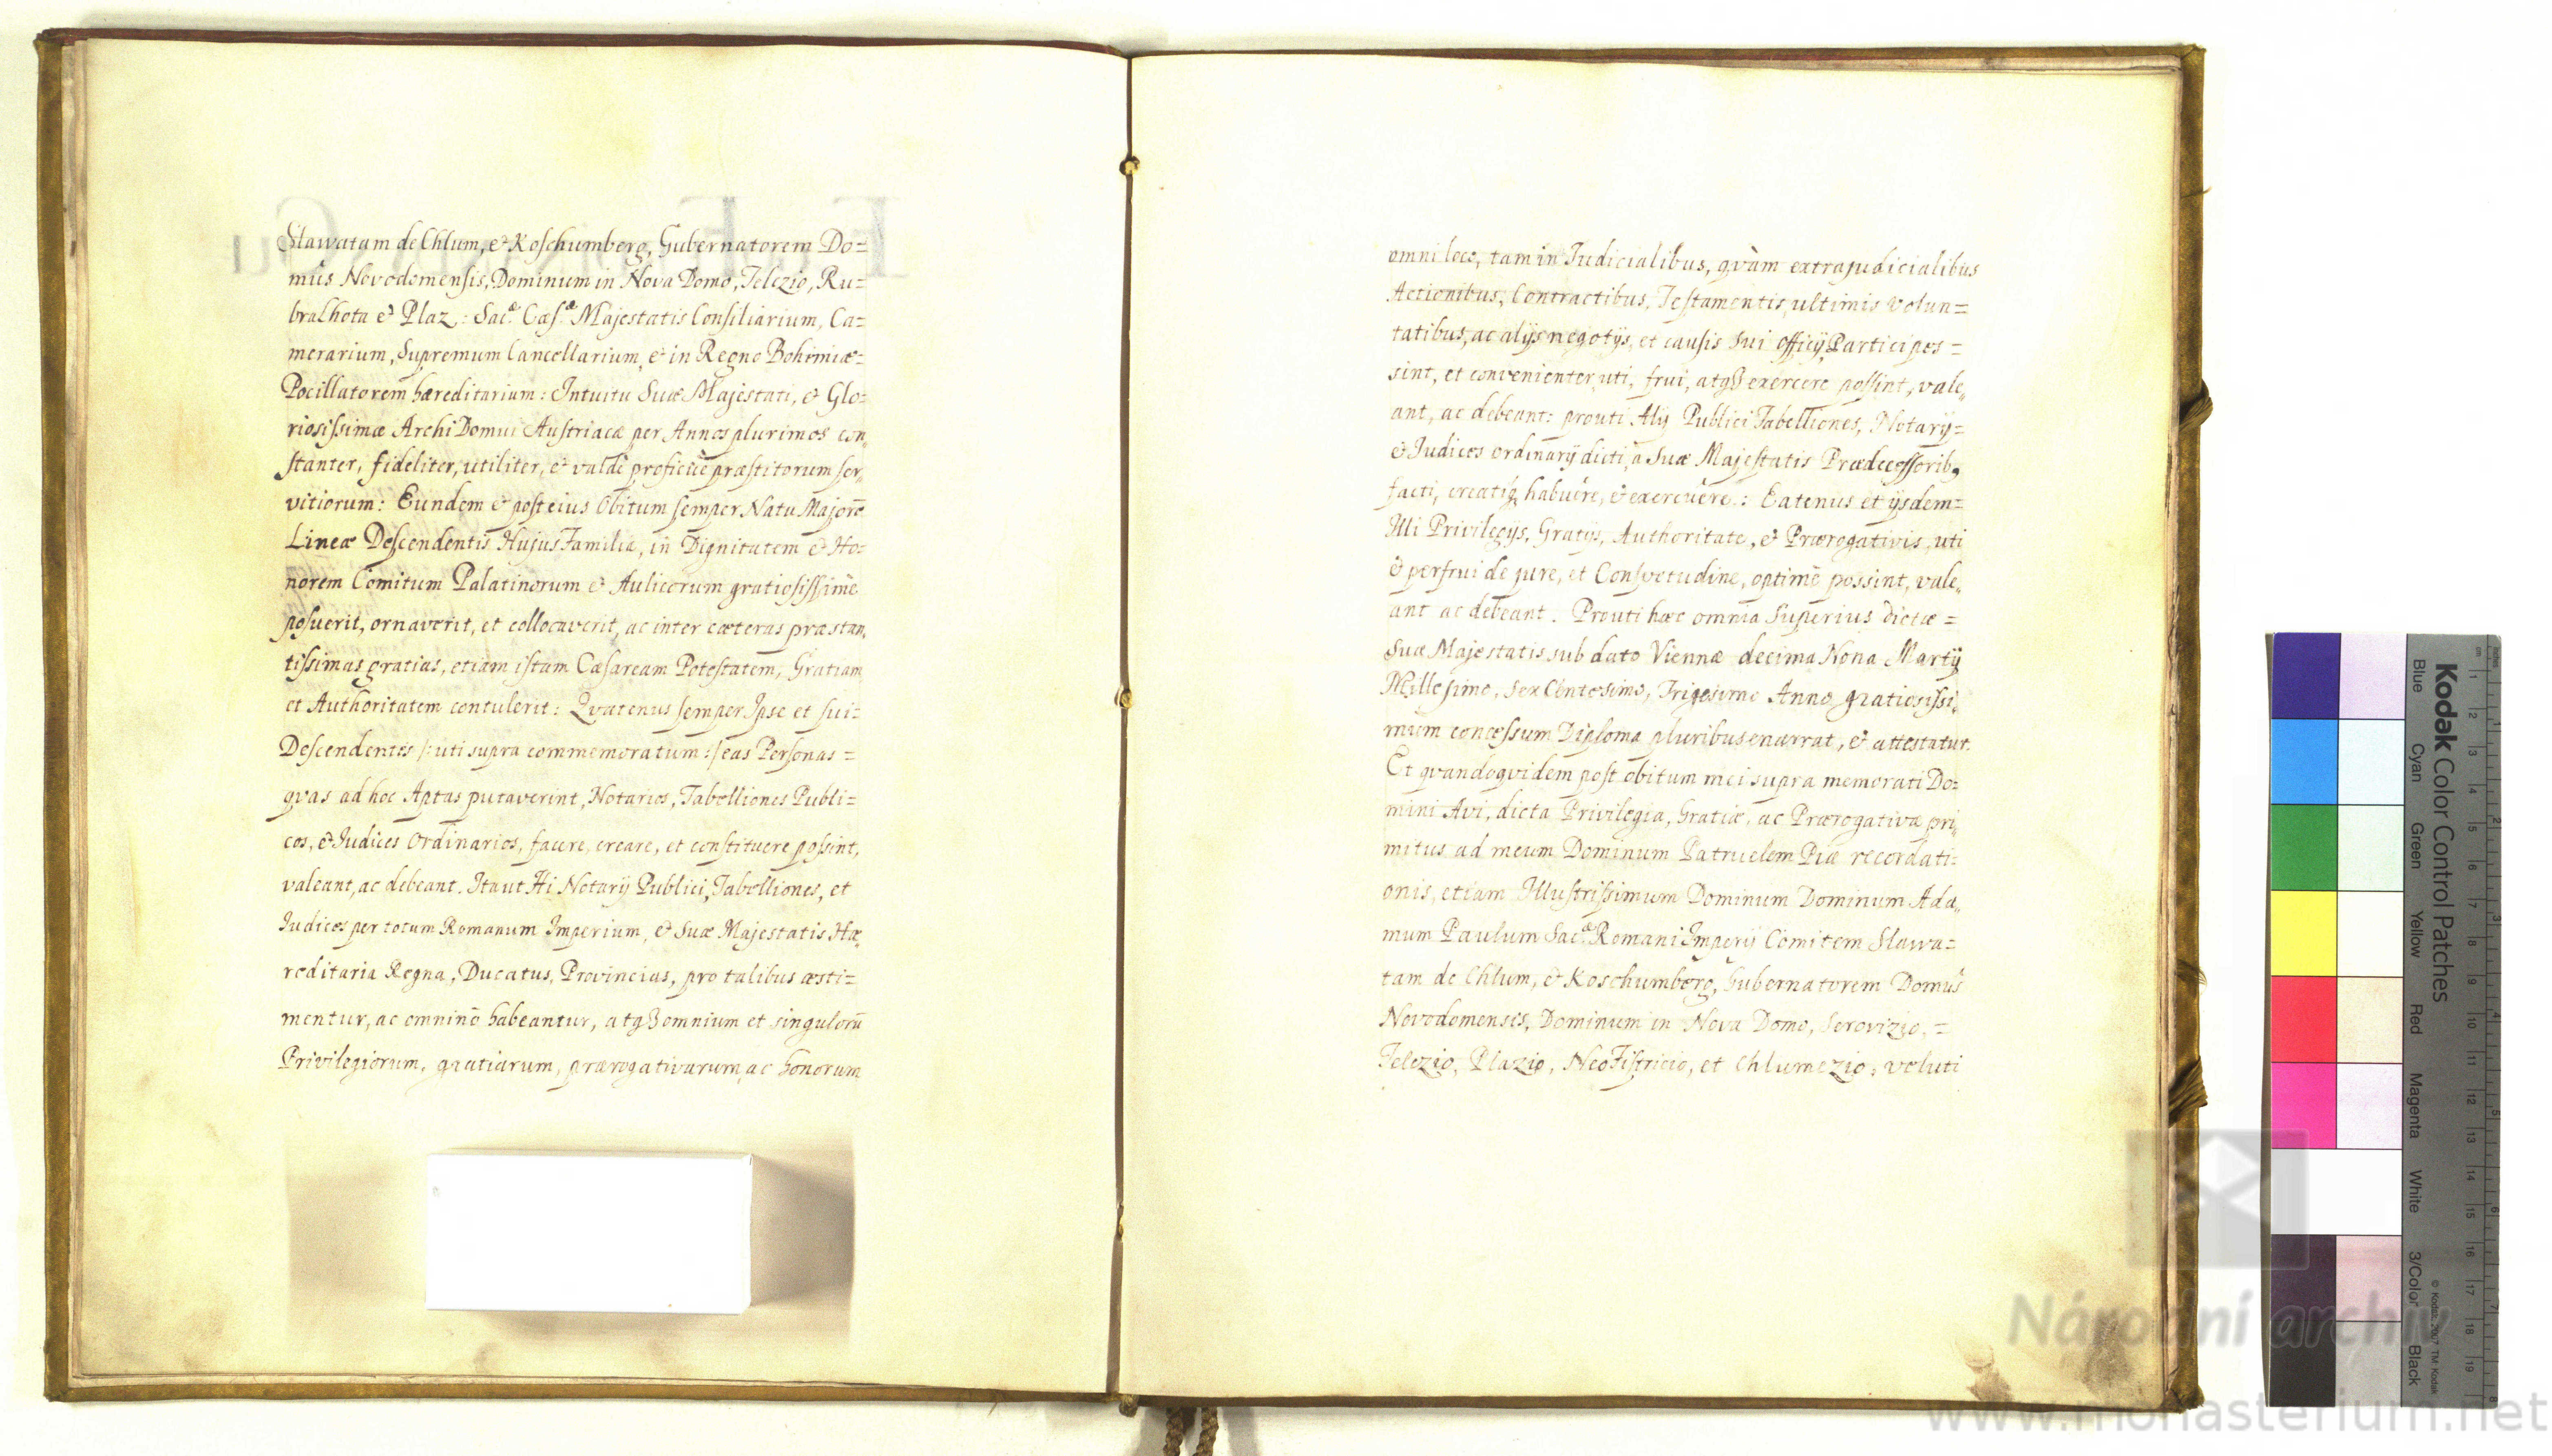 Slawatam de Chlum, & Koschumberg, Gubernatorem Do=
mûs Novodomensis, Dominum in Nova Domo, Telczio, Ru=
bralhota & Plaz: Sac.æ Cæs.æ Majestatis Consiliarium, Ca=
merarium, Supremum Cancellarium, & in Regno Bohemiæ=
Pocillatorem hæreditarium: Intuitu Suæ Majestati, & Glo=
riosissimæ ArchiDomui Austriacæ per Annos plurimos con„
stanter, fideliter, utiliter, & valdè proficuè præstitorum ser„
vitiorum: Eundem & post eius Obitum semper Natu Majorē
Lineæ Descendentis Hujus Familiæ, in Dignitatem & Ho=
norem Comitum Palatinorum & Aulicorum gratiosissimè
posuerit, ornaverit, et collocaverit, ac inter cæteras præstan„
tissimas gratias, etiam istam Cæsaream Potestatem, Gratiam
et Authoritatem contulerit: Qvatenus semper Ipse et sui=
Descendentes /: uti supra commemoratum :/ eas Personas =
qvas ad hoc Aptas putaverint, Notarios, Tabelliones Publi=
cos, & Iudices Ordinarios, facere, creare, et constituere possint,
valeant, ac debeant. Ita ut Hi Notarij Publici, Tabelliones, et
Iudices per totum Romanum Imperium, & Suæ Majestatis Hæ„
reditaria Regna, Ducatus, Provincias, pro talibus æsti=
mentur, ac omninò habeantur, atqꝫ omnium et singulorū
Privilegiorum, gratiarum, prærogativarum, ac honorum
omni loco, tam in Iudicialibus, qvàm extrajudicialibus
Actionibus, Contractibus, Testamentis, ultimis Volun=
tatibus, ac alijs negotijs, et causis Sui officij Participes =
sint, et convenienter uti, frui, atqꝫ exercere possint, vale„
ant, ac debeant: prouti Alij Publici Tabelliones, Notarij=
& Iudices ordinarij dicti, à Suæ Majestatis Prædecessorib,
facti, creatiq, habuêre, & exercuêre.: Eatenus et ijsdem=
Illi Privilegijs, Gratijs, Authoritate, & Prærogativis, uti
& perfrui de jure, et Consvetudine, optimè possint, vale„
ant ac debeant. Prouti hæc omnia Superius dictæ =
Suæ Majestatis sub dato Viennæ decima Nona Martij
Millesimo, Sex Centesimo, Trigesimo Anno gratiosissi„
mum concessum Diploma pluribus enarrat, & attestatur.
Et qvandoqvidem post obitum mei supra memorati Do=
mini Avi, dicta Privilegia, Gratiæ, ac Prærogativæ pri„
mitus ad meum Dominum Patruelem Piæ recordati=
onis, etiam Illustrissimum Dominum Dominum Ada„
mum Paulum Sac.æ Romani Imperij Comitem Slawa=
tam de Chlum, & Koschumberg, Gubernatorem Domûs
Novodomensis, Dominum in Nova Domo, Serovizio, =
Telczio, Plazio, NeoFistricio, et Chlumezio; veluti
Kodak Color Control Patches
Blue Cyan Green Yellow Red Magenta White 3/Color Black
© Kodak, 2007 TM: Kodak
Národní archiv
www.monasterium.net